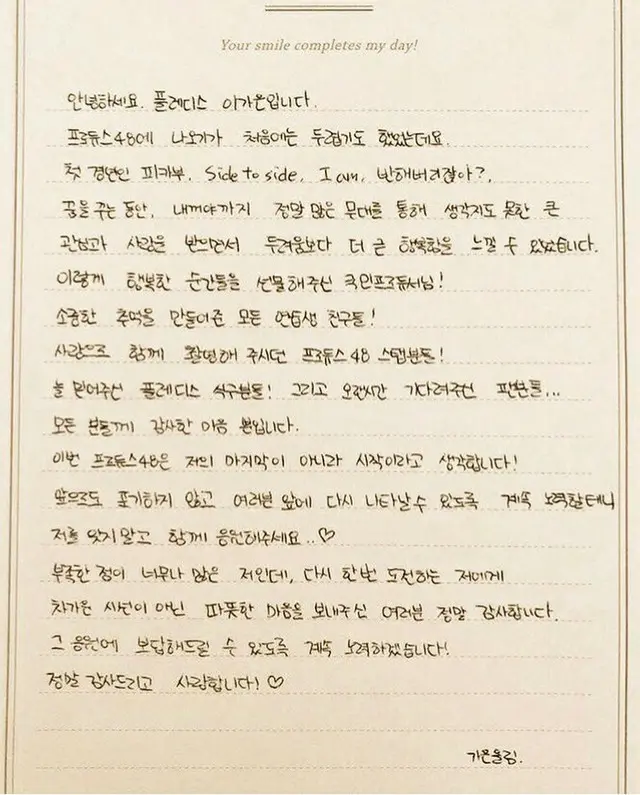 Your smile completes my day!
안녕하세요. 플레디스 이가은입니다.
프로듀스48에 나오기가 처음에는 두렵기도 했었는데요.
첫 경연인 피카부, Side to side, I am, 반해버리잖아?,
꿈을 꾸는 동안, 내꺼야까지 정말 많은 무대를 통해 생각지도 못한 큰
관심과 사랑을 받으면서 두려움보다 더 큰 행복함을 느낄 수 있었습니다.
이렇게 행복한 순간들을 선물해주신 국민프로듀서님!
소중한 추억을 만들어준 모든 연습생 친구들!
사랑으로 함께 촬영해 주시던 프로듀스 48 스탭분들!
늘 믿어주신 플레디스 식구분들! 그리고 오랜시간 기다려주신 팬분들...
모든 분들께 감사한 마음 뿐입니다.
이번 프로듀스48은 저의 마지막이 아니라 시작이라고 생각합니다!
앞으로도 포기하지 않고 여러분 앞에 다시 나타날 수 있도록 계속 노력할테니
저를 잊지 말고 함께 응원해주세요..♡
부족한 점이 너무나 많은 저인데, 다시 한번 도전하는 저에게
차가운 시선이 아닌 따뜻한 마음을 보내주신 여러분 정말 감사합니다.
그 응원에 보답해드릴 수 있도록 계속 노력하겠습니다!
정말 감사드리고 사랑합니다! ♡
가은올림.